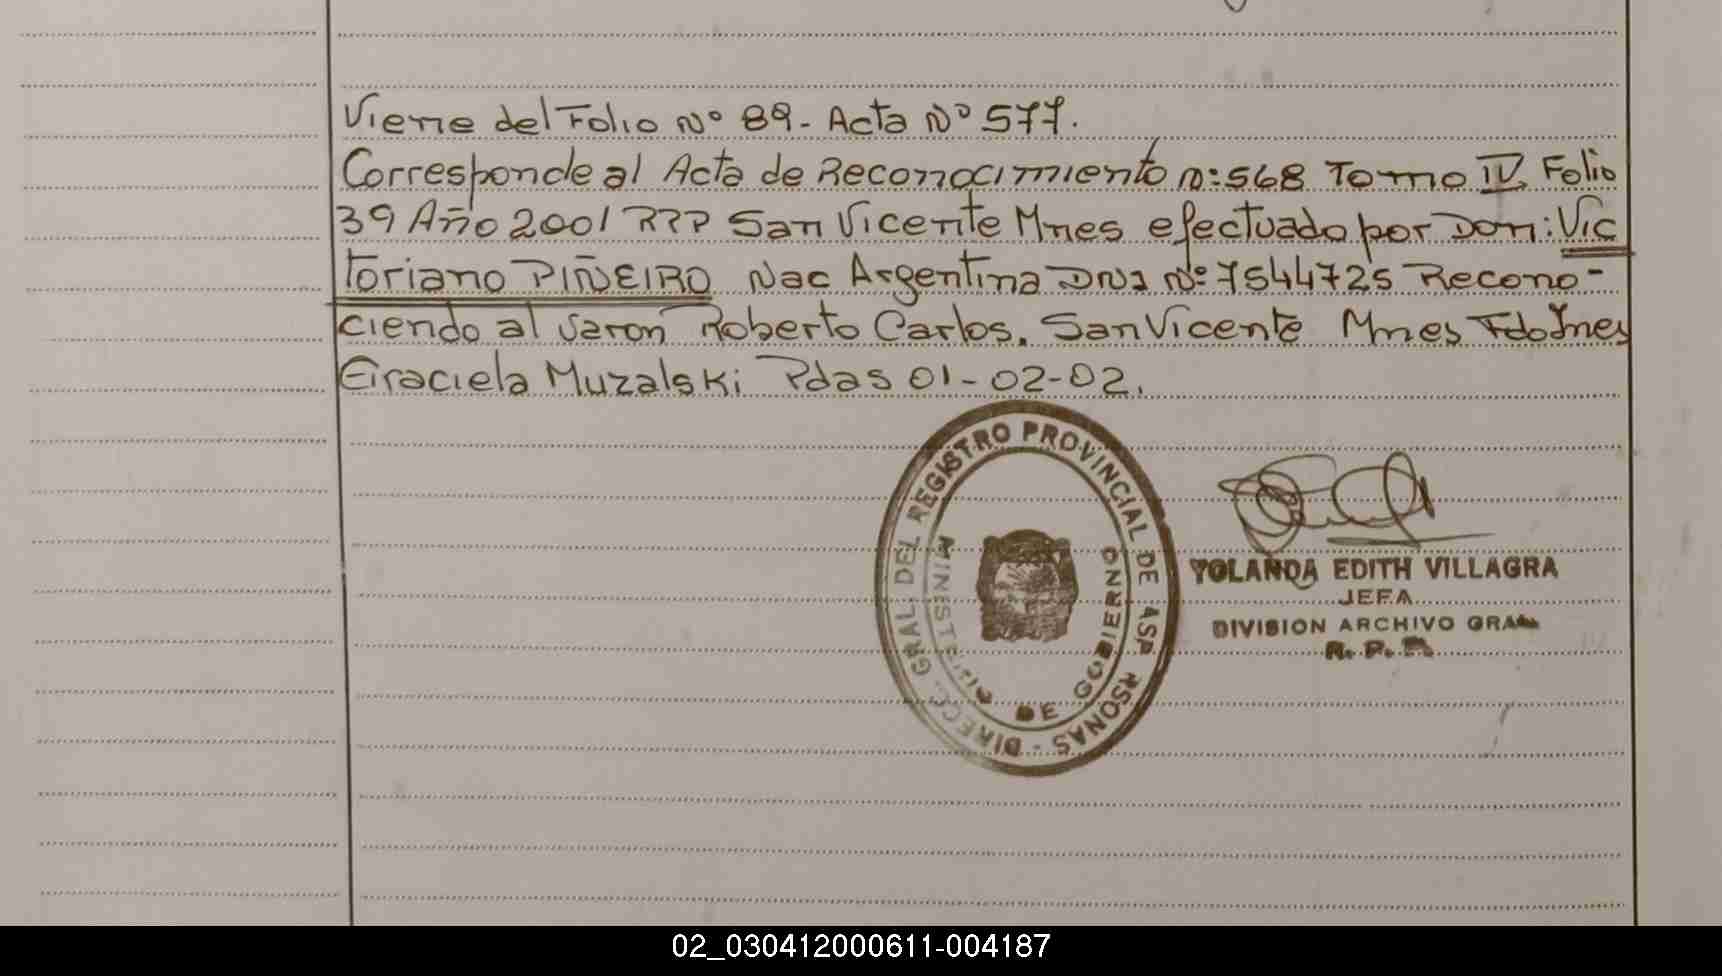 Viene del Folio Nº 89 - Acta Nº 577.
Corresponde al Acta de Reconocimiento n: 568 Tomo IV Folio
39 Año 2001 RPP San Vicente Mnes efectuado por Don: Vic
toriano PIÑEIRO Nac Argentina DNI Nº 7544725 Recono-
ciendo al varon Roberto Carlos. San Vicente Mnes Fdo Ines
Graciela Muzalski Pdas 01-02-02.
DIRECC. GRAL. DEL REGISTRO PROVINCIAL DE
MINISTERIO DE GOBIERNO
YOLANDA EDITH VILLAGRA
JEFA
DIVISION ARCHIVO GRAL
R. P. P.
02_030412000611-004187